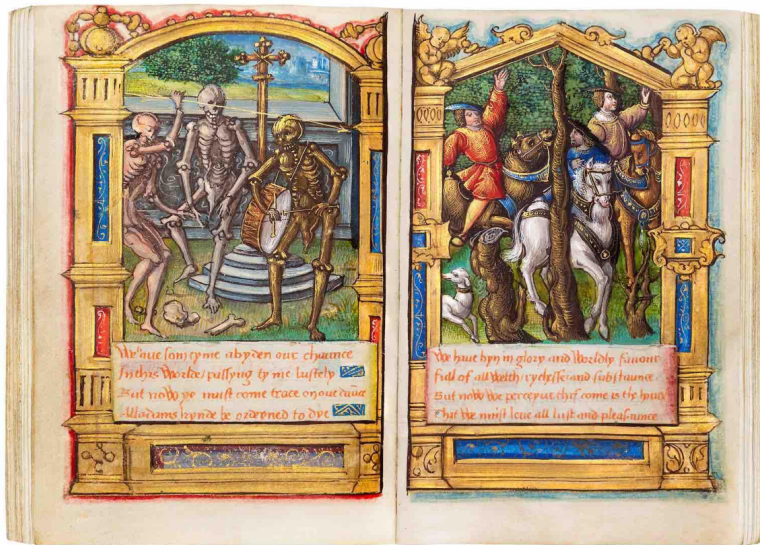 We haue somtyme abyden our chaunce
In this Worlde passyng tyme lustely
But now ye must come trace on our daunce
All adams kynde be ordeyned to dye
We haue byn in glory and Worldly fauour
full of all Welth rychesse and substaunce
But now We perceyue that come is the hour
That We must leue all lust and pleasaunce